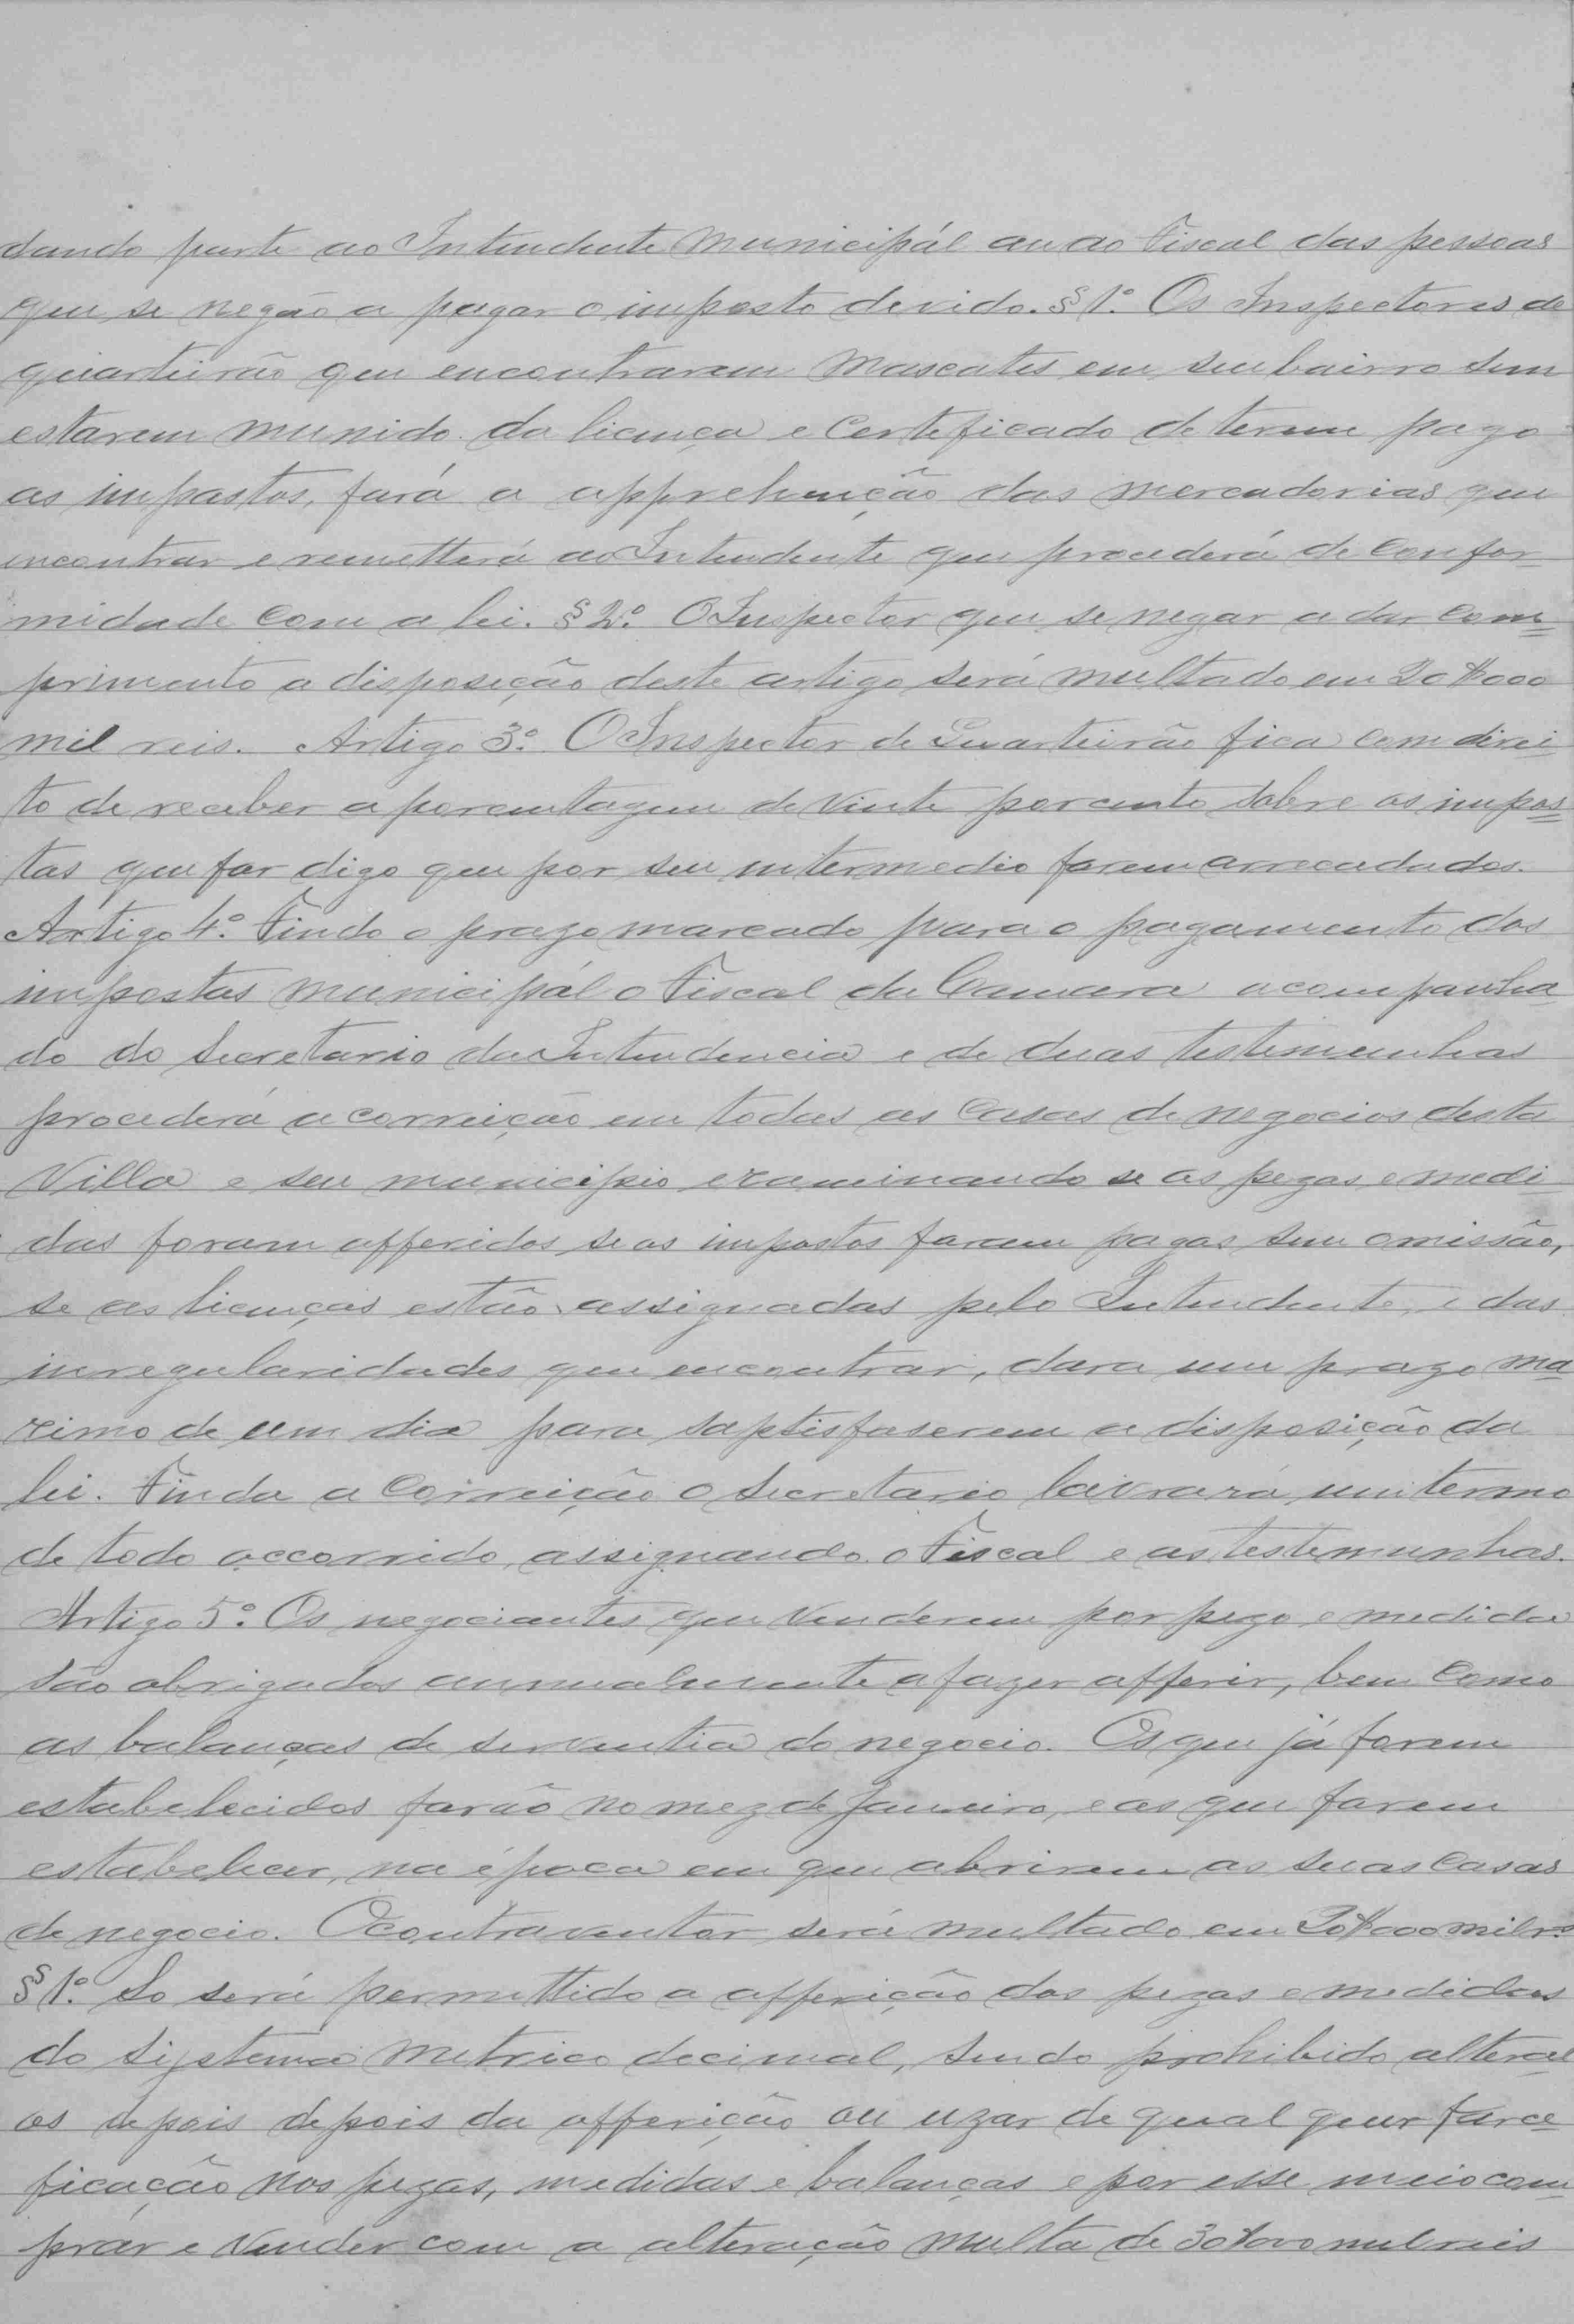 dando parte ao Intendente Municipál ou ao Fiscal das pessoas
que se negão a pagar o imposto devido. § 1º. Os Inspectores de
quarteirão que encontrarem Mascates em seu bairro sem
estarem munido da licença e Certeficado de terem pago
os impostos, fará a apprehenção das mercadorias que
encontrar e remetterá ao Intendente que procederá de Confor-
midade Com a lei. § 2º. O Inspector que se negar a dar Com=
primento a disposição deste artigo será multado em 20$000
mil reis. Artigo 3º. O Inspector de Quarteirão fica com direi=
to de receber a porcentagem de Vinte por cento sobre os impos=
tos que for digo que por seu intermedio forem arrecadados.
Artigo 4º. Findo o prazo marcado para o pagamento dos
impostos municipál o Fiscal da Camara acompanha
do do Secretario da Intendencia e de duas testemunhas
procederá a correição em todas as Casas de negocios desta
Villa e seu municipio examinando se os pezos e medi-
das foram afferidos se os impostos foram pagos sem omissão,
se as licenças estão assignadas pelo Intendente, e das
irregularidades que encontrar, dara um prazo ma
ximo de um dia para saptisfaserem a disposição da
lei. Finda a Correição o Secretario lavrará um termo
de todo occorrido, assignando o Fiscal e as testemunhas.
Artigo 5º. Os negociantes que Venderem por pezo e medida
são obrigados annualmente a fazer afferir, bem Como
as balanças de serventia do negocio. Os que já forem
estabelecidos farão no mez de Janeiro, e os que forem
estabelecer, na época em que abrirem as suas Casas
de negocio. O contraventor será multado em 20$000 mil rs
§ 1º. So será permettido a afferição dos pezos e medidas
do Systema Metrico decimal, sendo prohibido alteral
os depois depois da afferição ou uzar de qual quer farce
ficação nos pezos, medidas e balanças e por esse meio com=
prár e Vender com a alteração Multa de 30$000 mil reis